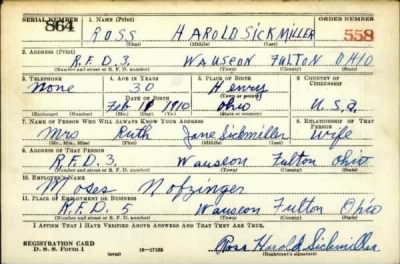 SERIAL NUMBER 1. NAME (Print) ORDER NUMBER
864 ROSS HAROLD SICKMILLER 558
(First) (Middle) (Last)
2. ADDRESS (Print)
R.F.D. 3, WAUSEON FULTON OHIO
(Number and street or R. F. D. number) (Town) (County) (State)
3. TELEPHONE 4. AGE IN YEARS 5. PLACE OF BIRTH 6. COUNTRY OF CITIZENSHIP
None 30 Henry
DATE OF BIRTH (Town or county)
Feb 1910 Ohio U.S.A.
(Exchange) (Number) (Mo.) (Day) (Yr.) (State or country)
7. NAME OF PERSON WHO WILL ALWAYS KNOW YOUR ADDRESS 8. RELATIONSHIP OF THAT PERSON
Mrs Ruth Jane Sickmiller Wife
(Mr., Mrs., Miss) (First) (Middle) (Last)
9. ADDRESS OF THAT PERSON
R.F.D. 3, Wauseon Fulton Ohio
(Number and street or R. F. D. number) (Town) (County) (State)
10. EMPLOYER'S NAME
Moses Nofzinger
11. PLACE OF EMPLOYMENT OR BUSINESS
R.F.D. 5 Wauseon Fulton Ohio
(Number and street or R. F. D. number) (Town) (County) (State)
I AFFIRM THAT I HAVE VERIFIED ABOVE ANSWERS AND THAT THEY ARE TRUE.
REGISTRATION CARD
D. S. S. Form 1 (over) 16-17105 Ross Harold Sickmiller
(Registrant's signature)